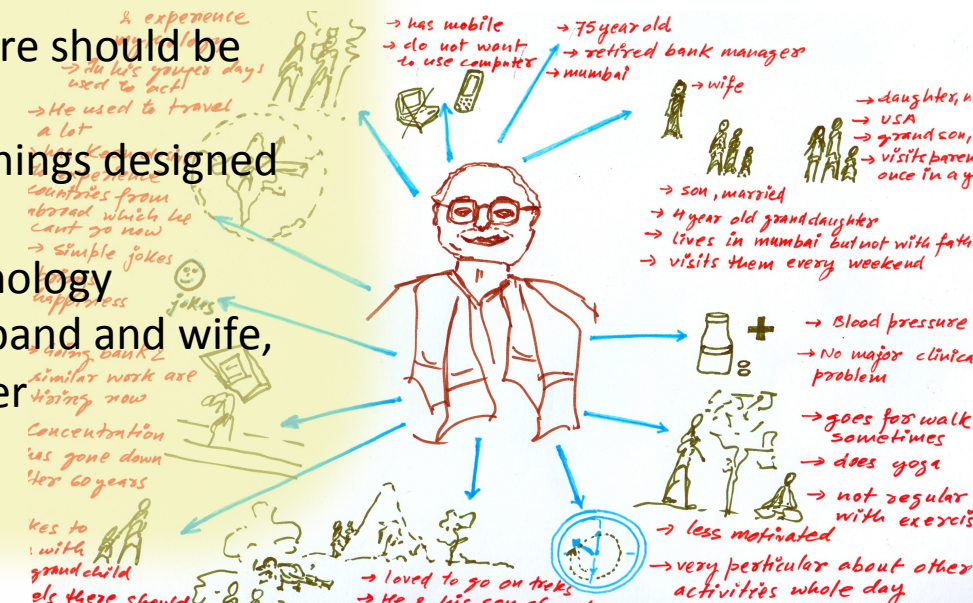 re should be
nings designed
nology
band and wife,
er
& experience
→ In his younger days
used to act
→ He used to travel
a lot
countries from
abroad which he
cant go now
→ simple jokes
happiness
jokes
→ doing bank &
similar work are
tiring now
Concentration
has gone down
after 60 years
kes to
with
grandchild
els there should
→ has mobile
→ do not want
to use computer
→ 75 year old
→ retired bank manager
→ mumbai
→ wife
→ daughter, m
→ USA
→ grandson,
→ visits paren
once in a y
→ son, married
→ 4 year old granddaughter
→ lives in mumbai but not with fath
→ visits them every weekend
→ Blood pressure
→ No major clinica
problem
→ goes for walk
sometimes
→ does yoga
→ not regular
with exercis
→ less motivated
→ very perticular about other
activities whole day
→ loved to go on treks
→ He & his son